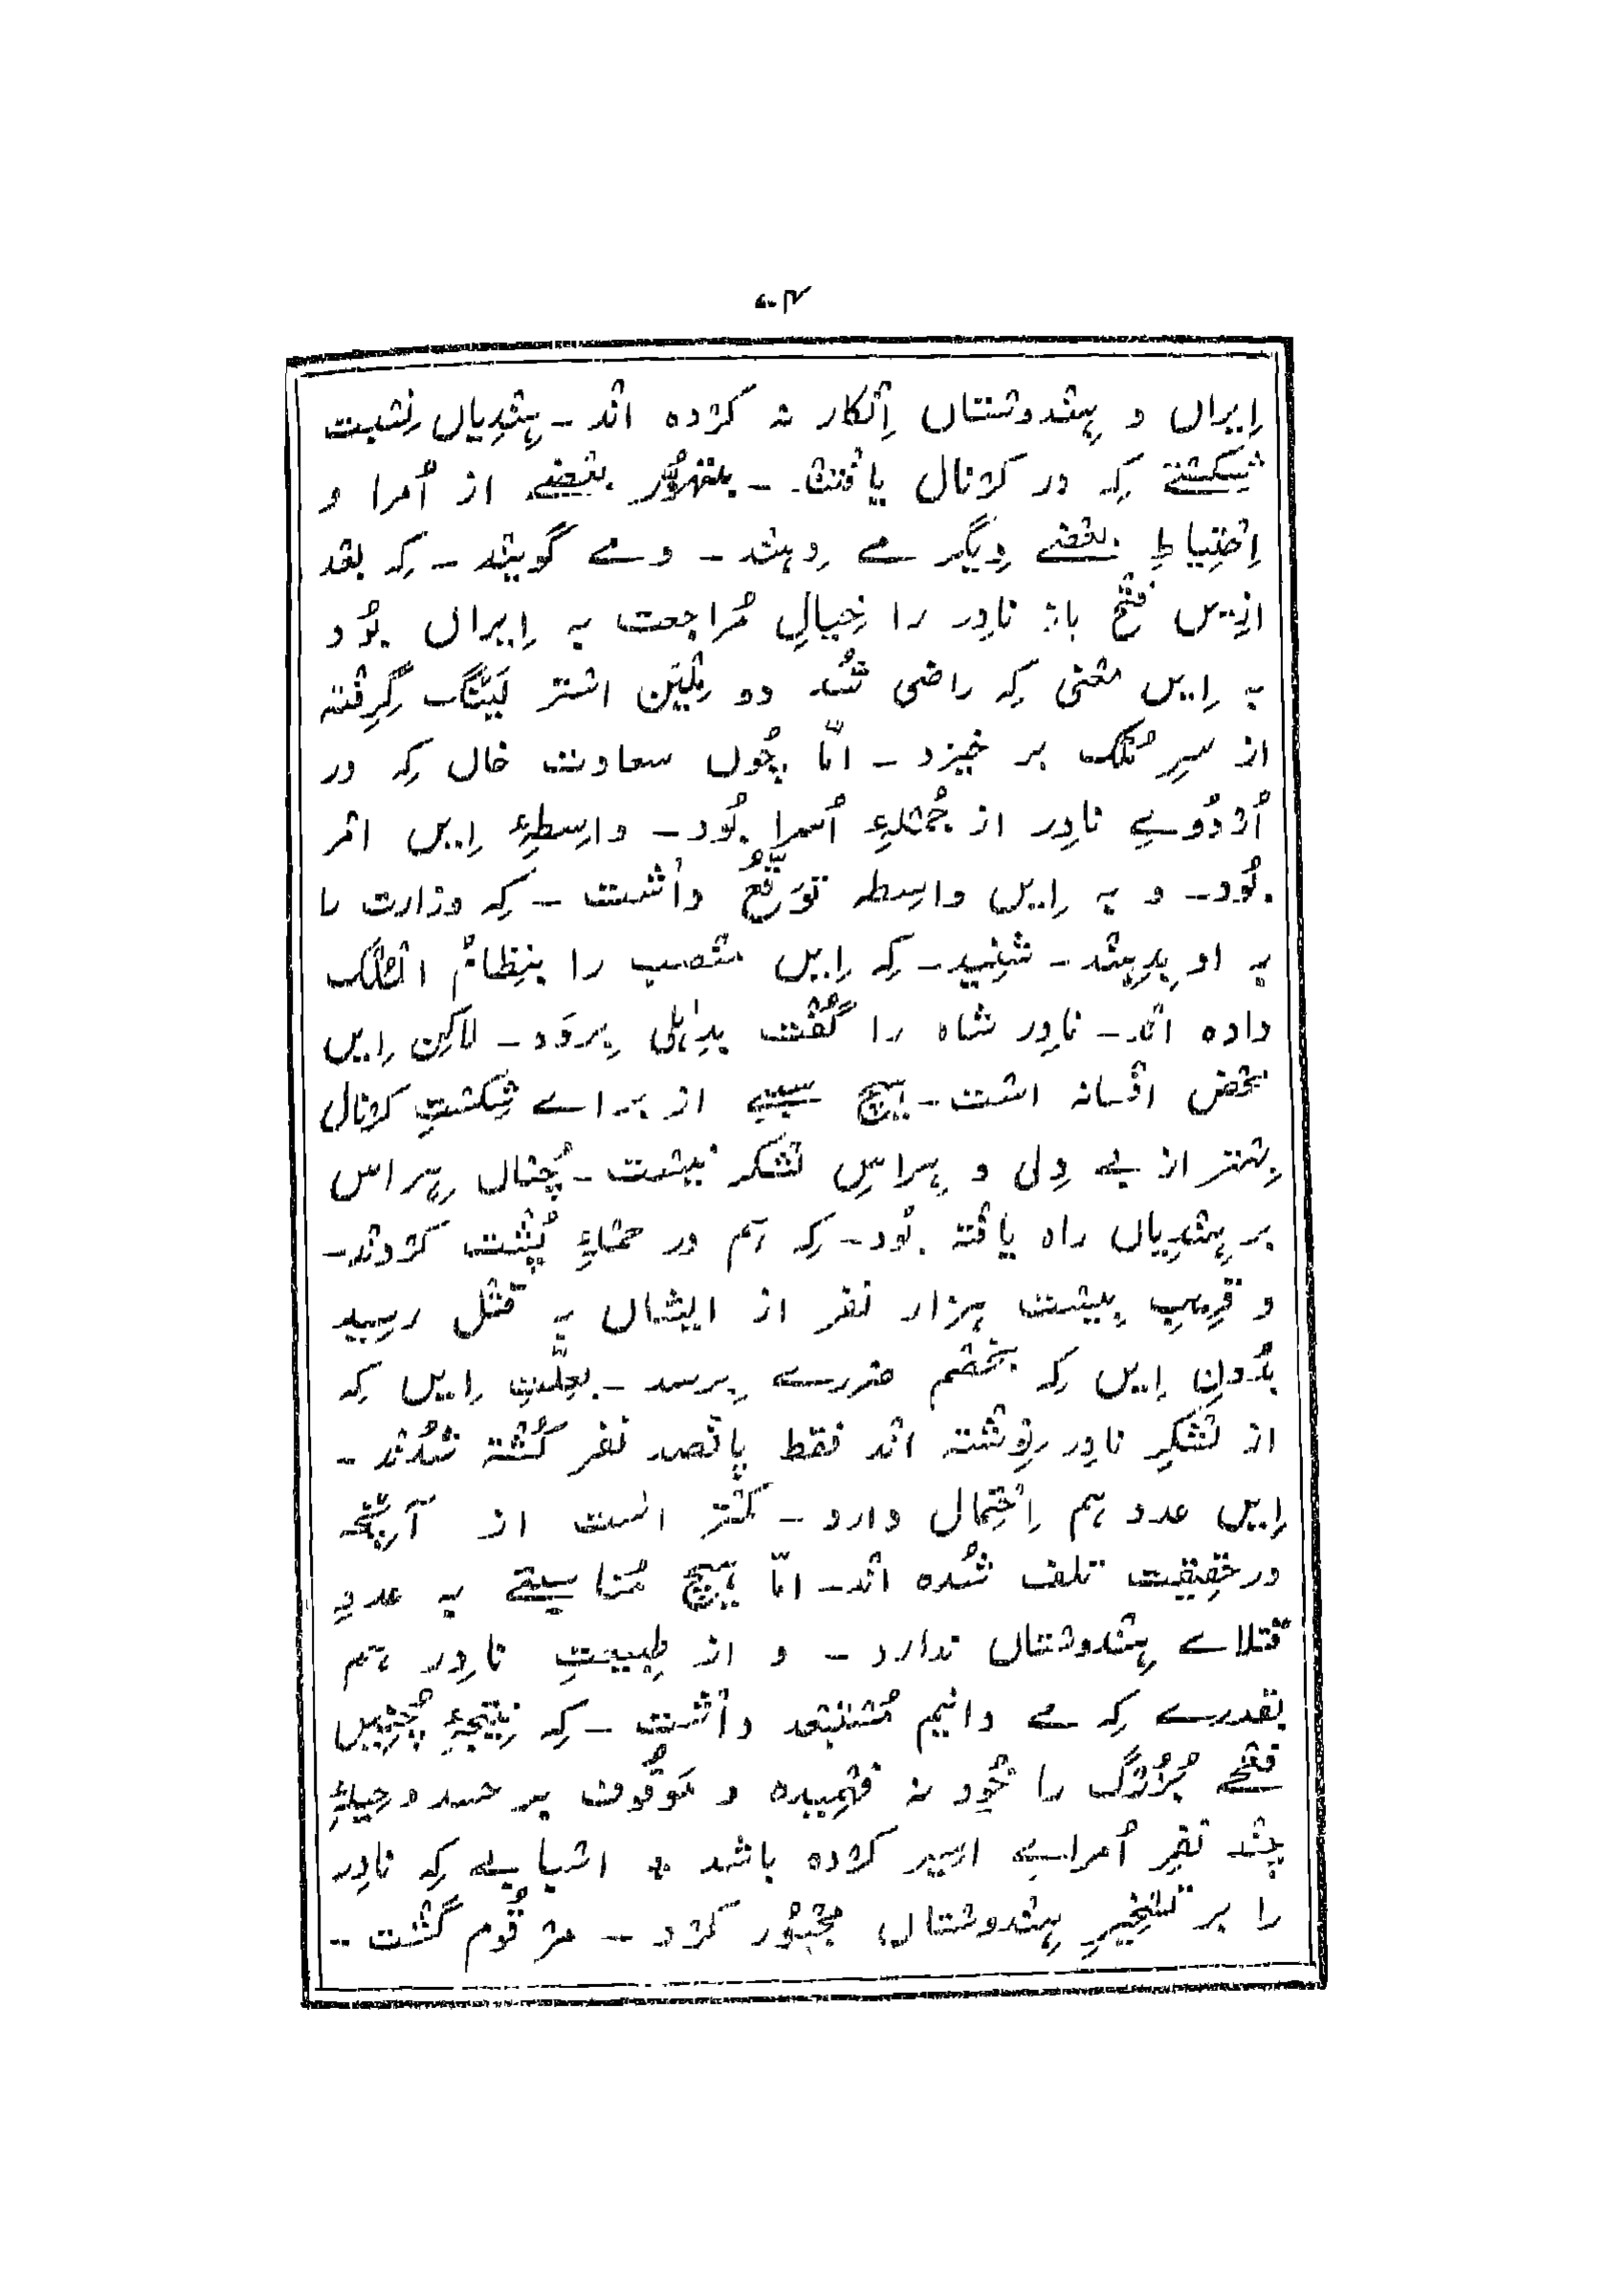 اِیران و ہِنْدوسْتاں اِنْکار نہ کرْدہ انْد ـ ہِنْدِیاں نِسْبت
شِکسْتے کِہ در کرْنال یافْتنْد ـ بتہوُّرِ بعْضے از اُمرا و
اِحْتِیاطِ بعْضے دِیگر مے دِہنْد ـ و مے گوینْد ـ کِہ بعْد
ازِیں فتْح باز نادِر را خِیالِ مُراجعت بہ اِیراں بُود و
بہ اِیں معْنی کِہ راضی شُد دو مِلْیَن اسْتر لَیِنْگ گِرِفْتہ
از سرِ مُلْک بر خیزد ـ امّا چُوں سعادت خاں کِہ در
اُرْدُوے نادِر از جُمْلۂِ اُسرا بُود ـ واسِطۂِ اِیں امْر
بُود ـ و بہ اِیں واسِطہ توَقُّع داشْت ـ کِہ وزارت را
بہ او بِدِہنْد ـ شنِید ـ کِہ اِیں منْصب را بنِظامُ الْمُلْک
دادہ انْد ـ نادِر شاہ را گُفْت بدِہْلی بِروَد ـ لاکِن اِیں
محْض افْسانہ اسْت ـ ہیچ سببے از براے شِکسْتِ کرْنال
بِہْتر از بے دِلی و ہِراسِ لشْکر نیسْت ـ چُناں ہِراس
بر ہِنْدِیاں راہ یافْتہ بُود ـ کِہ ہم در حمْلۂِ پُشْت کرْدنْد ـ
و قرِیبِ بِیسْت ہزار نفر از ایشاں بہ قتْل رسِید
بدُونِ اِیں کِہ بخصْم ضررے بِرسد ـ بعِلّتِ اِیں کِہ
از لشْکرِ نادِر نِوِشْتہ انْد فقط پانْصد نفر کُشْتہ شُدنْد ـ
اِیں عدد ہم اِحْتِمال دارد ـ کمْتر اسْت از آنْچِہ
در حقِیقت تلف شُدہ انْد ـ امّا ہیچ مُناسبتے بہ عددِ
قتْلاے ہِنْدوسْتاں ندارد ـ و از طبِیعتِ نادِر ہم
بقدرے کِہ مے دانیم مُسْتبْعد داشْت ـ کِہ نتِیجۂِ چُنِیں
فتْحے بُزُرْگ را خُود نہ فہْمِیدہ و مَوقُوف بر حسد و حِیلۂِ
چنْد نفرِ اُمراے اسِیر کرْدہ باشد ۰ اسْبابے کِہ نادِر
را بر تسْخِیرِ ہِنْدوسْتاں مجْبُور کرْد ـ مرْقُوم گشْت ـ